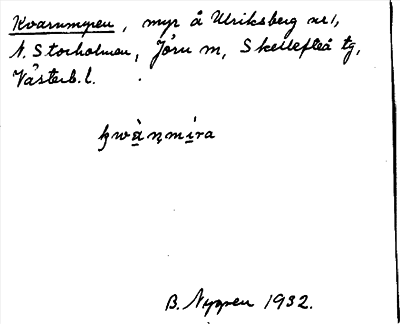 Kvarnmyren, myr å Ulriksberg nr 1,
N. Storholmen, Jörn sn, Skellefteå tg,
Västerb. l.
kwàṇmíra
B. Nygren 1932.